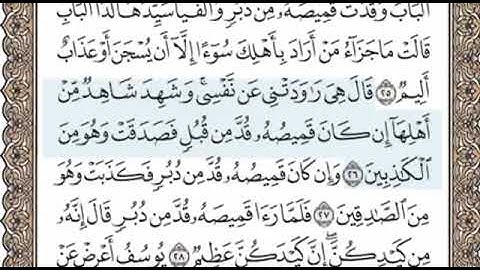 الْبَابَ وَقَدَّتْ قَمِيصَهُۥ مِن دُبُرٍ وَأَلْفَيَا سَيِّدَهَا لَدَا الْبَابِ
قَالَتْ مَا جَزَآءُ مَنْ أَرَادَ بِأَهْلِكَ سُوٓءًا إِلَّآ أَن يُسْجَنَ أَوْ عَذَابٌ
أَلِيمٌ ۝٢٥ قَالَ هِىَ رَٰوَدَتْنِى عَن نَّفْسِى ۚ وَشَهِدَ شَاهِدٌ مِّنْ
أَهْلِهَآ إِن كَانَ قَمِيصُهُۥ قُدَّ مِن قُبُلٍ فَصَدَقَتْ وَهُوَ مِنَ
الْكَٰذِبِينَ ۝٢٦ وَإِن كَانَ قَمِيصُهُۥ قُدَّ مِن دُبُرٍ فَكَذَبَتْ وَهُوَ
مِنَ الصَّٰدِقِينَ ۝٢٧ فَلَمَّا رَءَا قَمِيصَهُۥ قُدَّ مِن دُبُرٍ قَالَ إِنَّهُۥ
مِن كَيْدِكُنَّ ۖ إِنَّ كَيْدَكُنَّ عَظِيمٌ ۝٢٨ يُوسُفُ أَعْرِضْ عَنْ